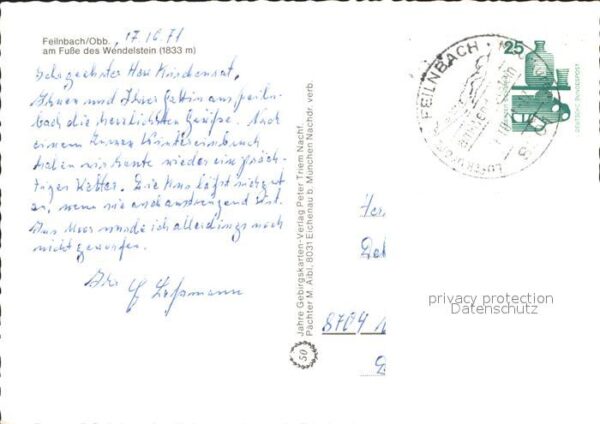 Feilnbach/Obb.
am Fuße des Wendelstein (1833 m)
17.10.71
Sehr geehrter Herr
Ihnen und Ihrer Gattin aus Feiln-
bach die herzlichsten Grüße. Nach
einem kurzen Wintereinbruch
haben wir heute wieder ein präch-
tiges Wetter. Die Kur läßt sich gut
an, wenn sie auch anstrengend ist.
Das Moor wurde ich allerdings noch
nicht geworfen.
Ihr
Jahre Gebirgskarten-Verlag Peter Triem Nachf.
Pächter M. Aibl, 8031 Eichenau b. München Nachdr. verb.
50
FEILNBACH
25
DEUTSCHE BUNDESPOST
8704
privacy protection
Datenschutz